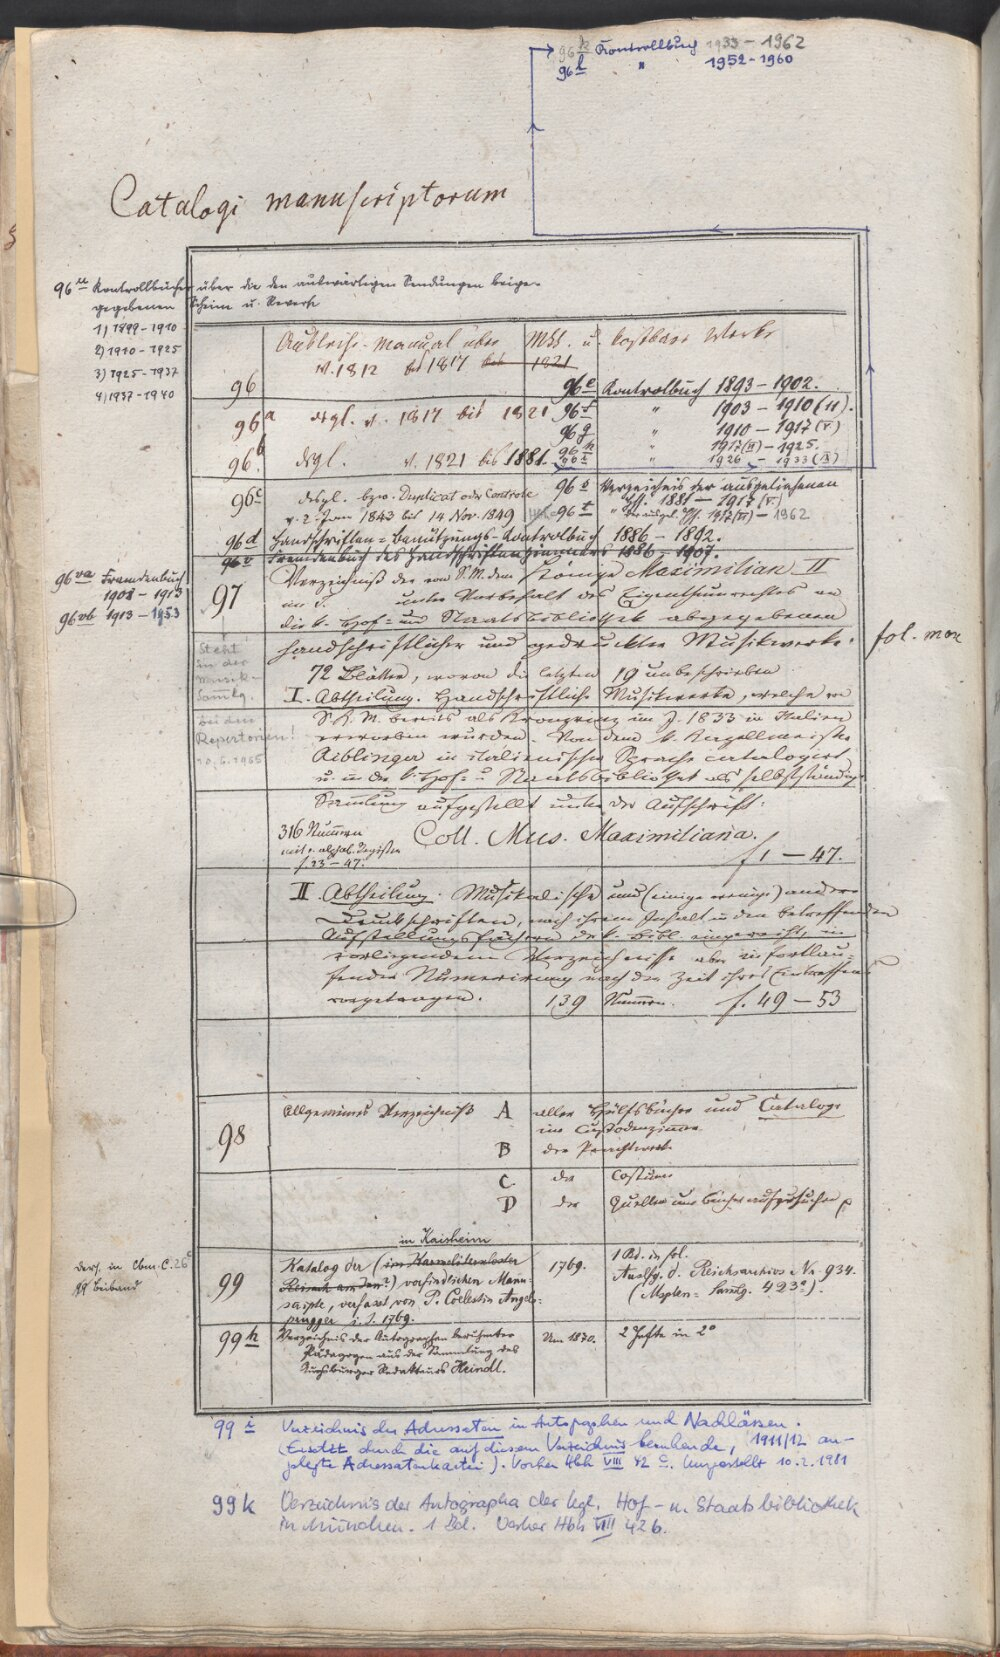 96k Kontrollbuch 1933 - 1962
96l " 1952 - 1960
Catalogi manuscriptorum
96u Kontrollbücher über die den auswärtigen Sendungen beige-
gegebenen Scheine u. Reverse
1) 1899 - 1910
2) 1910 - 1925
3) 1925 - 1937
4) 1937 - 1940
96 Ausleihe-Manual über Mss. u. kostbare Werke
v. 1812 bis 1817 bis 1821
96e Kontrolbuch 1893 - 1902.
96a desgl. v. 1817 bis 1821 96f " 1903 - 1910 (II).
96g " 1910 - 1917 (V)
96h " 1917 (VI) - 1925.
96b. desgl. v. 1821 bis 1881. 96i " 1926 - 1933 (IX)
96c desgl. bzw. Duplicat oder Controle
v. 2. Jan 1843 bis 14 Nov. 1849
96s Verzeichnis der ausgeliehenen
Hss. 1881 - 1917 (V.)
96t " 1917 (VI) - 1962
96d Handschriften-Benützungs-Kontrolbuch 1886 - 1892.
96v Fremdenbuch des Handschriftenzimmers 1886 - 1907.
96va Fremdenbuch
1908 - 1913
96vb 1913 - 1953
97 Verzeichniß der von S. M. dem Könige Maximilian II
unter Vorbehalt des Eigenthumsrechtes an
die k. Hof- und Staatsbibliothek abgegebenen
handschriftlicher und gedruckter Musikwerke.
fol. max
Steht
in der
Musik-
Sammlg.
bei den
Repertorien!
10.6.1965
72 Blätter, wovon die letzten 19 unbeschrieben
I. Abtheilung. Handschriftliche Musikwerke, welche von
S. K. M. bereits als Kronprinz im J. 1833 in Italien
erworben wurden. Von dem k. Kapellmeister
Aiblinger in italienischer Sprache catalogirt
u. in der k. Hof- u. Staatsbibliothek als selbstständige
Sammlung aufgestellt unter der Aufschrift:
316 Nummern
mit e. alphab. Register
f. 23 - 47.
Coll. Mus. Maximiliana.
f 1 - 47.
II. Abtheilung. Musikalische und (einige wenige) andere
Druckschriften, nach ihrem Inhalt in den betreffenden
Aufstellungsfächern der k. Bibl. eingereiht, in
vorliegendem Verzeichnisse aber in fortlau-
fender Numerirung nach der Zeit ihres Eintreffens
vorgetragen. 139 Nummern. f. 49 - 53
98 Allgemeines Verzeichniß A aller Hülfsbücher und Cataloge
im Custodenzimmer
B der Prachtwerke
C. der Costume
D der Quellen um Bücher aufzusuchen
ders. in Cbm C. 26c
99 Beiband
in Kaisheim
99 Katalog der (im Karmelitenkloster
) vorfindlichen Manu-
scripte, verfasst von P. Coelestin Angels-
prugger i. J. 1769.
1769. 1 Bd. in fol.
Auslfg. d. Reichsarchivs Nr. 934.
(Msplen-Sammlg. 423a).
99h Verzeichnis der Autographen berühmter
Pädagogen aus der Sammlung des
Augsburger Redakteurs Heindl.
Um 1870. 2 Hefte in 2°
99i Verzeichnis der Adressaten in Autographen und Nachlässen.
(Ersetzt durch die auf diesem Verzeichnis beruhende, 1911/12 an-
gelegte Adressatenkartei). Vorher Hbh VIII 42 c. Umgestellt 10.2.1981
99k Verzeichnis der Autographa der kgl. Hof- u. Staatsbibliothek
in München. 1 Bd. Vorher Hbh VIII 42b.